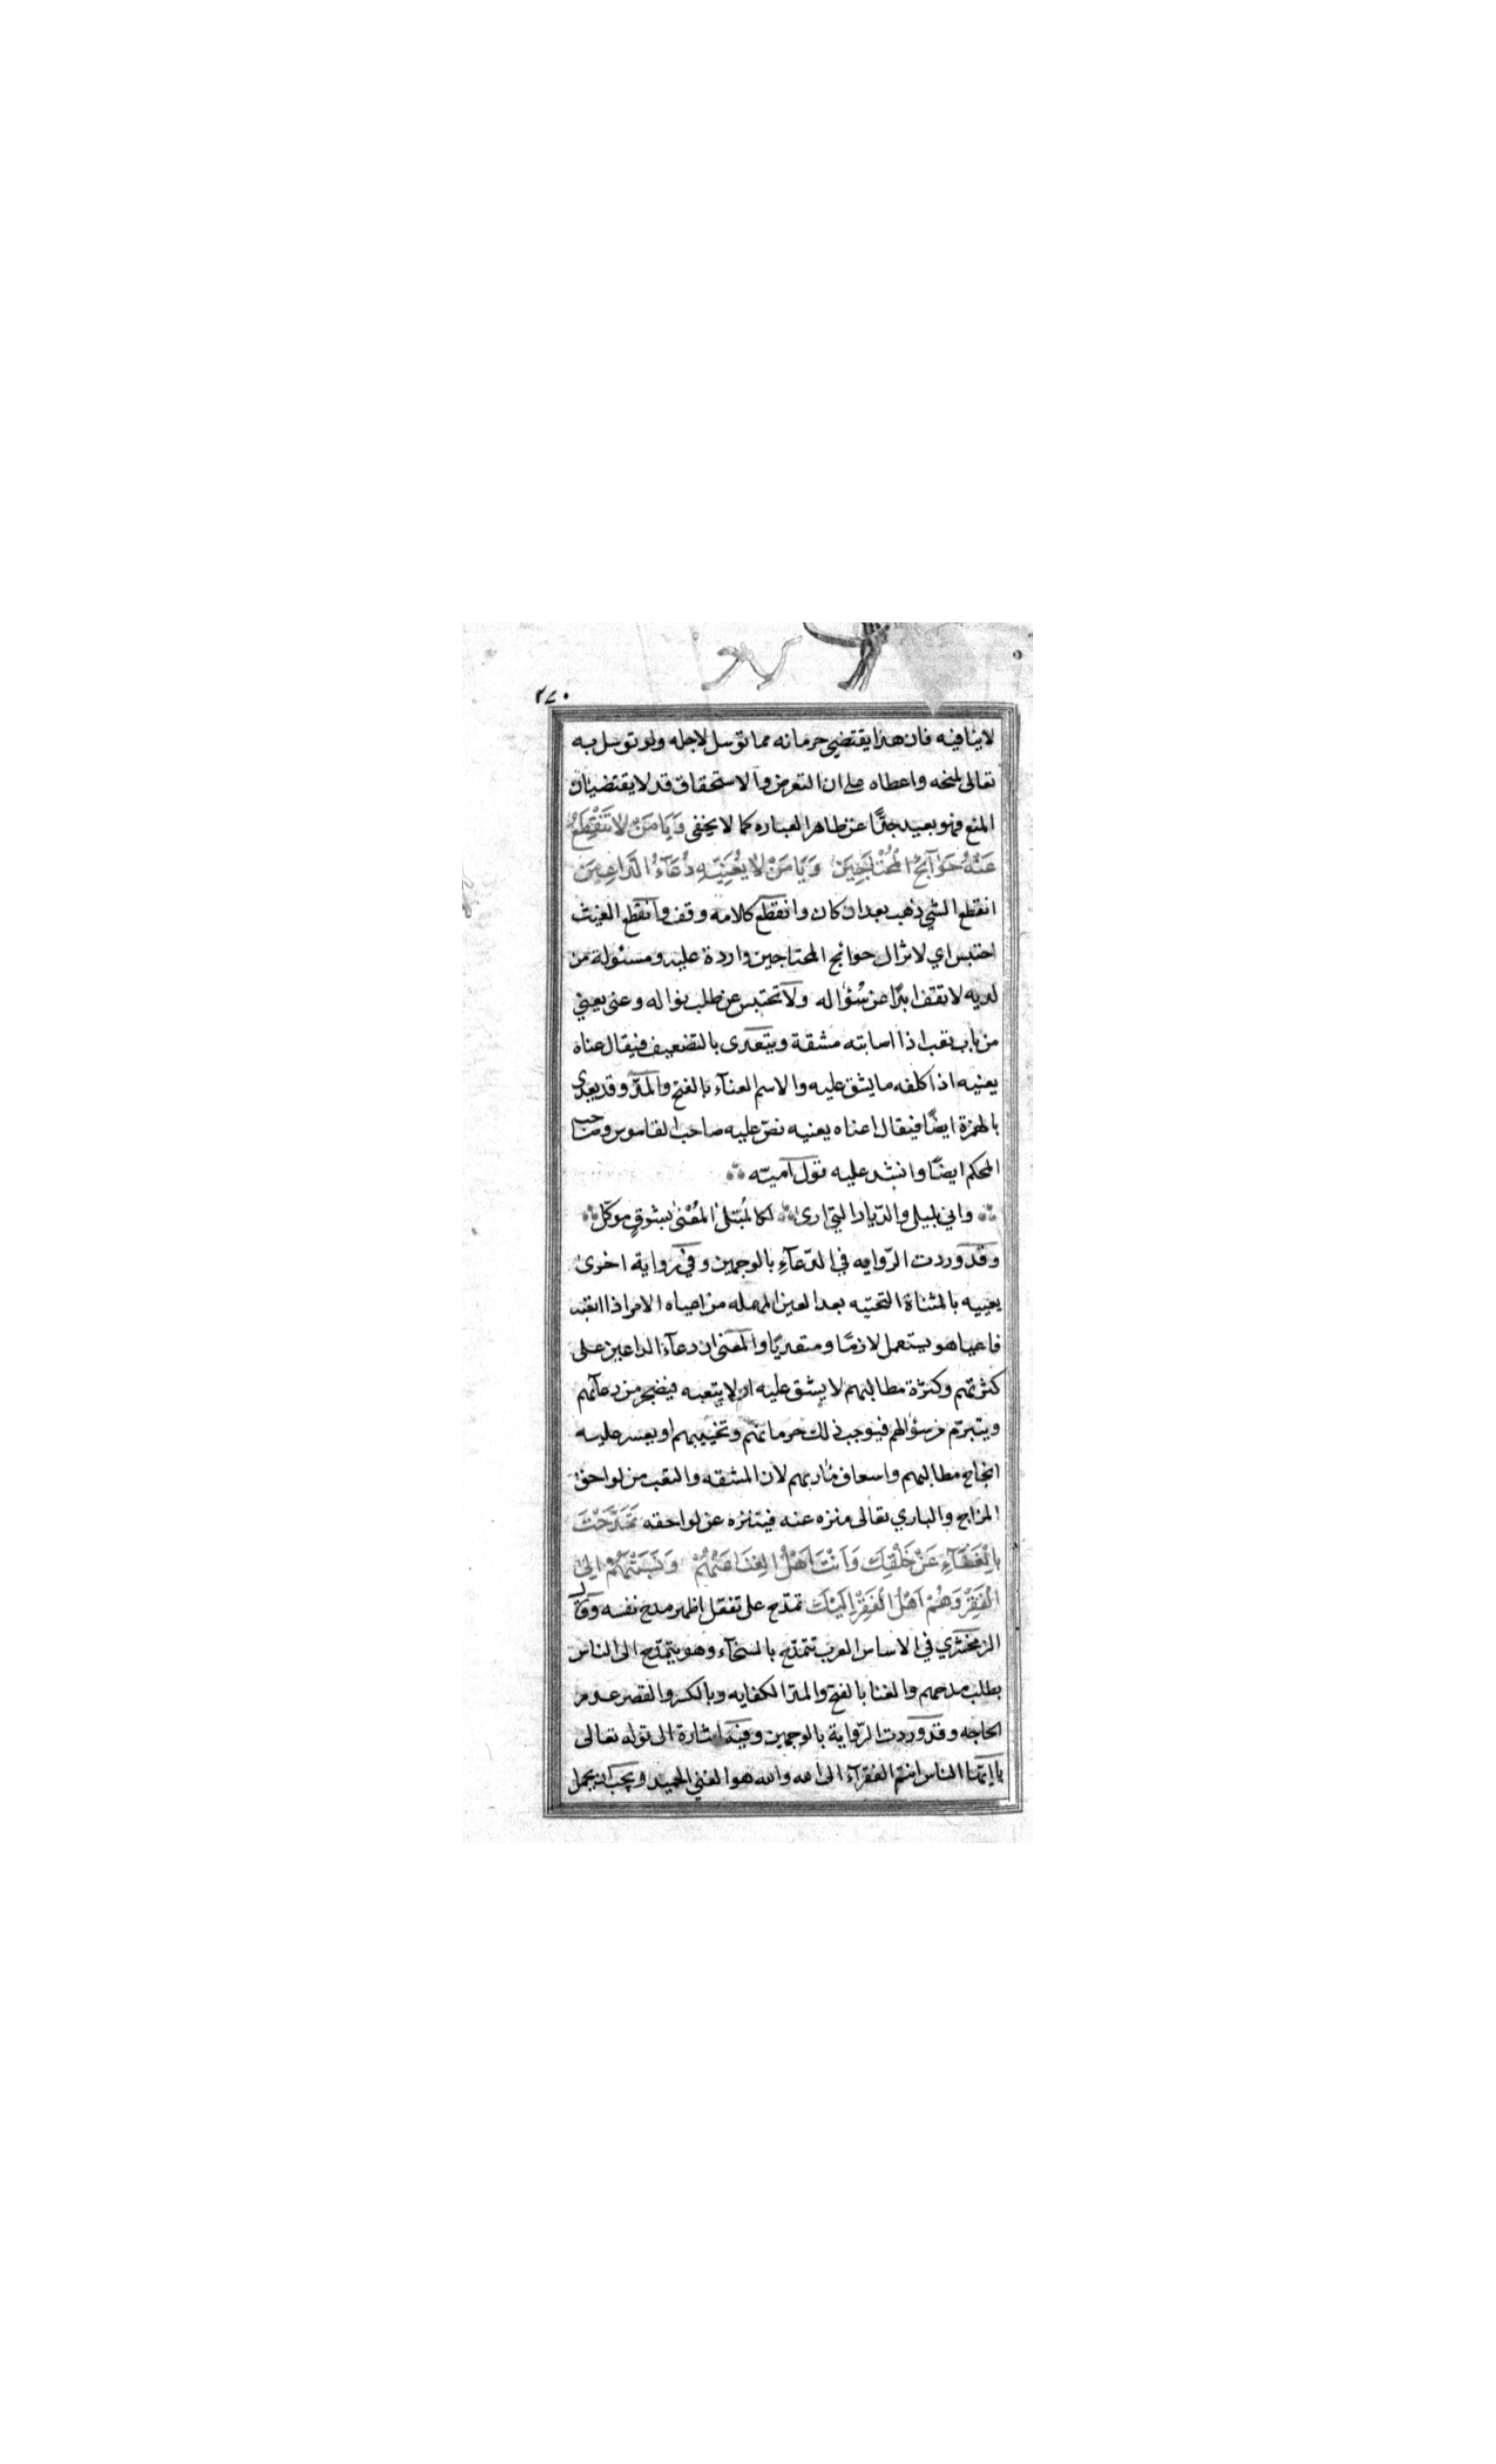 ٢٧٠
لاينافيه فان هذا يقتضي حرمانه مما توسل لاجله ولو توسل به
تعالى لمنحه واعطاه على ان التعرض والاستحقاق قد لا يقتضيان
المنع فهو بعيد جدًّا عن ظاهر العباره كما لا يخفى وَيَا مَنْ لَا تَنْقَطِعُ
عَنْهُ حَوَآئِجُ الْمُحْتَاجِينَ وَيَا مَنْ لَا يُعَنِّيهِ دُعَآءُ الدَّاعِينَ
انقطع الشي ذهب بعد ان كان وانقطع كلامه وقف وانقطع الغيث
احتبس اي لا تزال حوائج المحتاجين واردة عليه ومسئولة من
لديه لا تقف ابدًا عن سُؤاله ولا تحتبس عن طلب نواله وعنى يعني
من باب تعب اذا اصابته مشقة ويتعدى بالتضعيف فيقال عناه
يعنيه اذا كلفه ما يشق عليه والاسم العنآء بالفتح والمدّ وقد يعدى
بالهمزة ايضًا فيقال اعناه يعنيه نصّ عليه صاحب القاموس وصاحب
المحكم ايضًا وانشد عليه قول اميّه
واني بليلى والدّيار التي ارى لكا لمُبتلى المُعْنى بشوقٍ موكّل
وقد وردت الرّوايه في الدّعآءِ بالوجهين وفي رواية اخرى
يعييه بالمثناة التحتيّه بعد العين المهمله من اعياه الامر اذا اتعبه
فاعيا هو يستعمل لازمًا ومتعديًا والمعنى ان دعآء الداعين على
كثرتهم وكثرة مطالبهم لا يشق عليه او لا يتعبه فيضجر من دعآئهم
ويتبرّم من سؤالهم فيوجب ذلك حرمانهم وتخييبهم او يعسر عليه
انجاح مطالبهم واسعاف مٰاربهم لان المشقه والتعب من لواحق
المزاج والباري تعالى منزه عنه فيتنزه عن لواحقه تَمَدَّحْتَ
بِالْغَنَآءِ عَنْ خَلْقِكَ وَاَنْتَ اَهْلُ الْغِنَا عَنْهُمْ وَنَسَبْتَهُمْ اِلَى
الْفَقْرِ وَهُمْ اَهْلُ الْفَقْرِ اِلَيْكَ تمدّح على تفعّل اظهر مدح نفسه وقال
الزمخشري في الاساس العرب تتمدّح بالسخآء وهو يتمدّح الى الناس
يطلب مدحهم والغنا بالفتح والمدّ الكفايه وبالكسر والقصر عدم
الحاجه وقد وردت الرّواية بالوجهين وفيه اشارة الى قوله تعالى
يا ايّها الناس انتم الفقرآء الى الله والله هو الغني الحميد ويجب ان يحمل